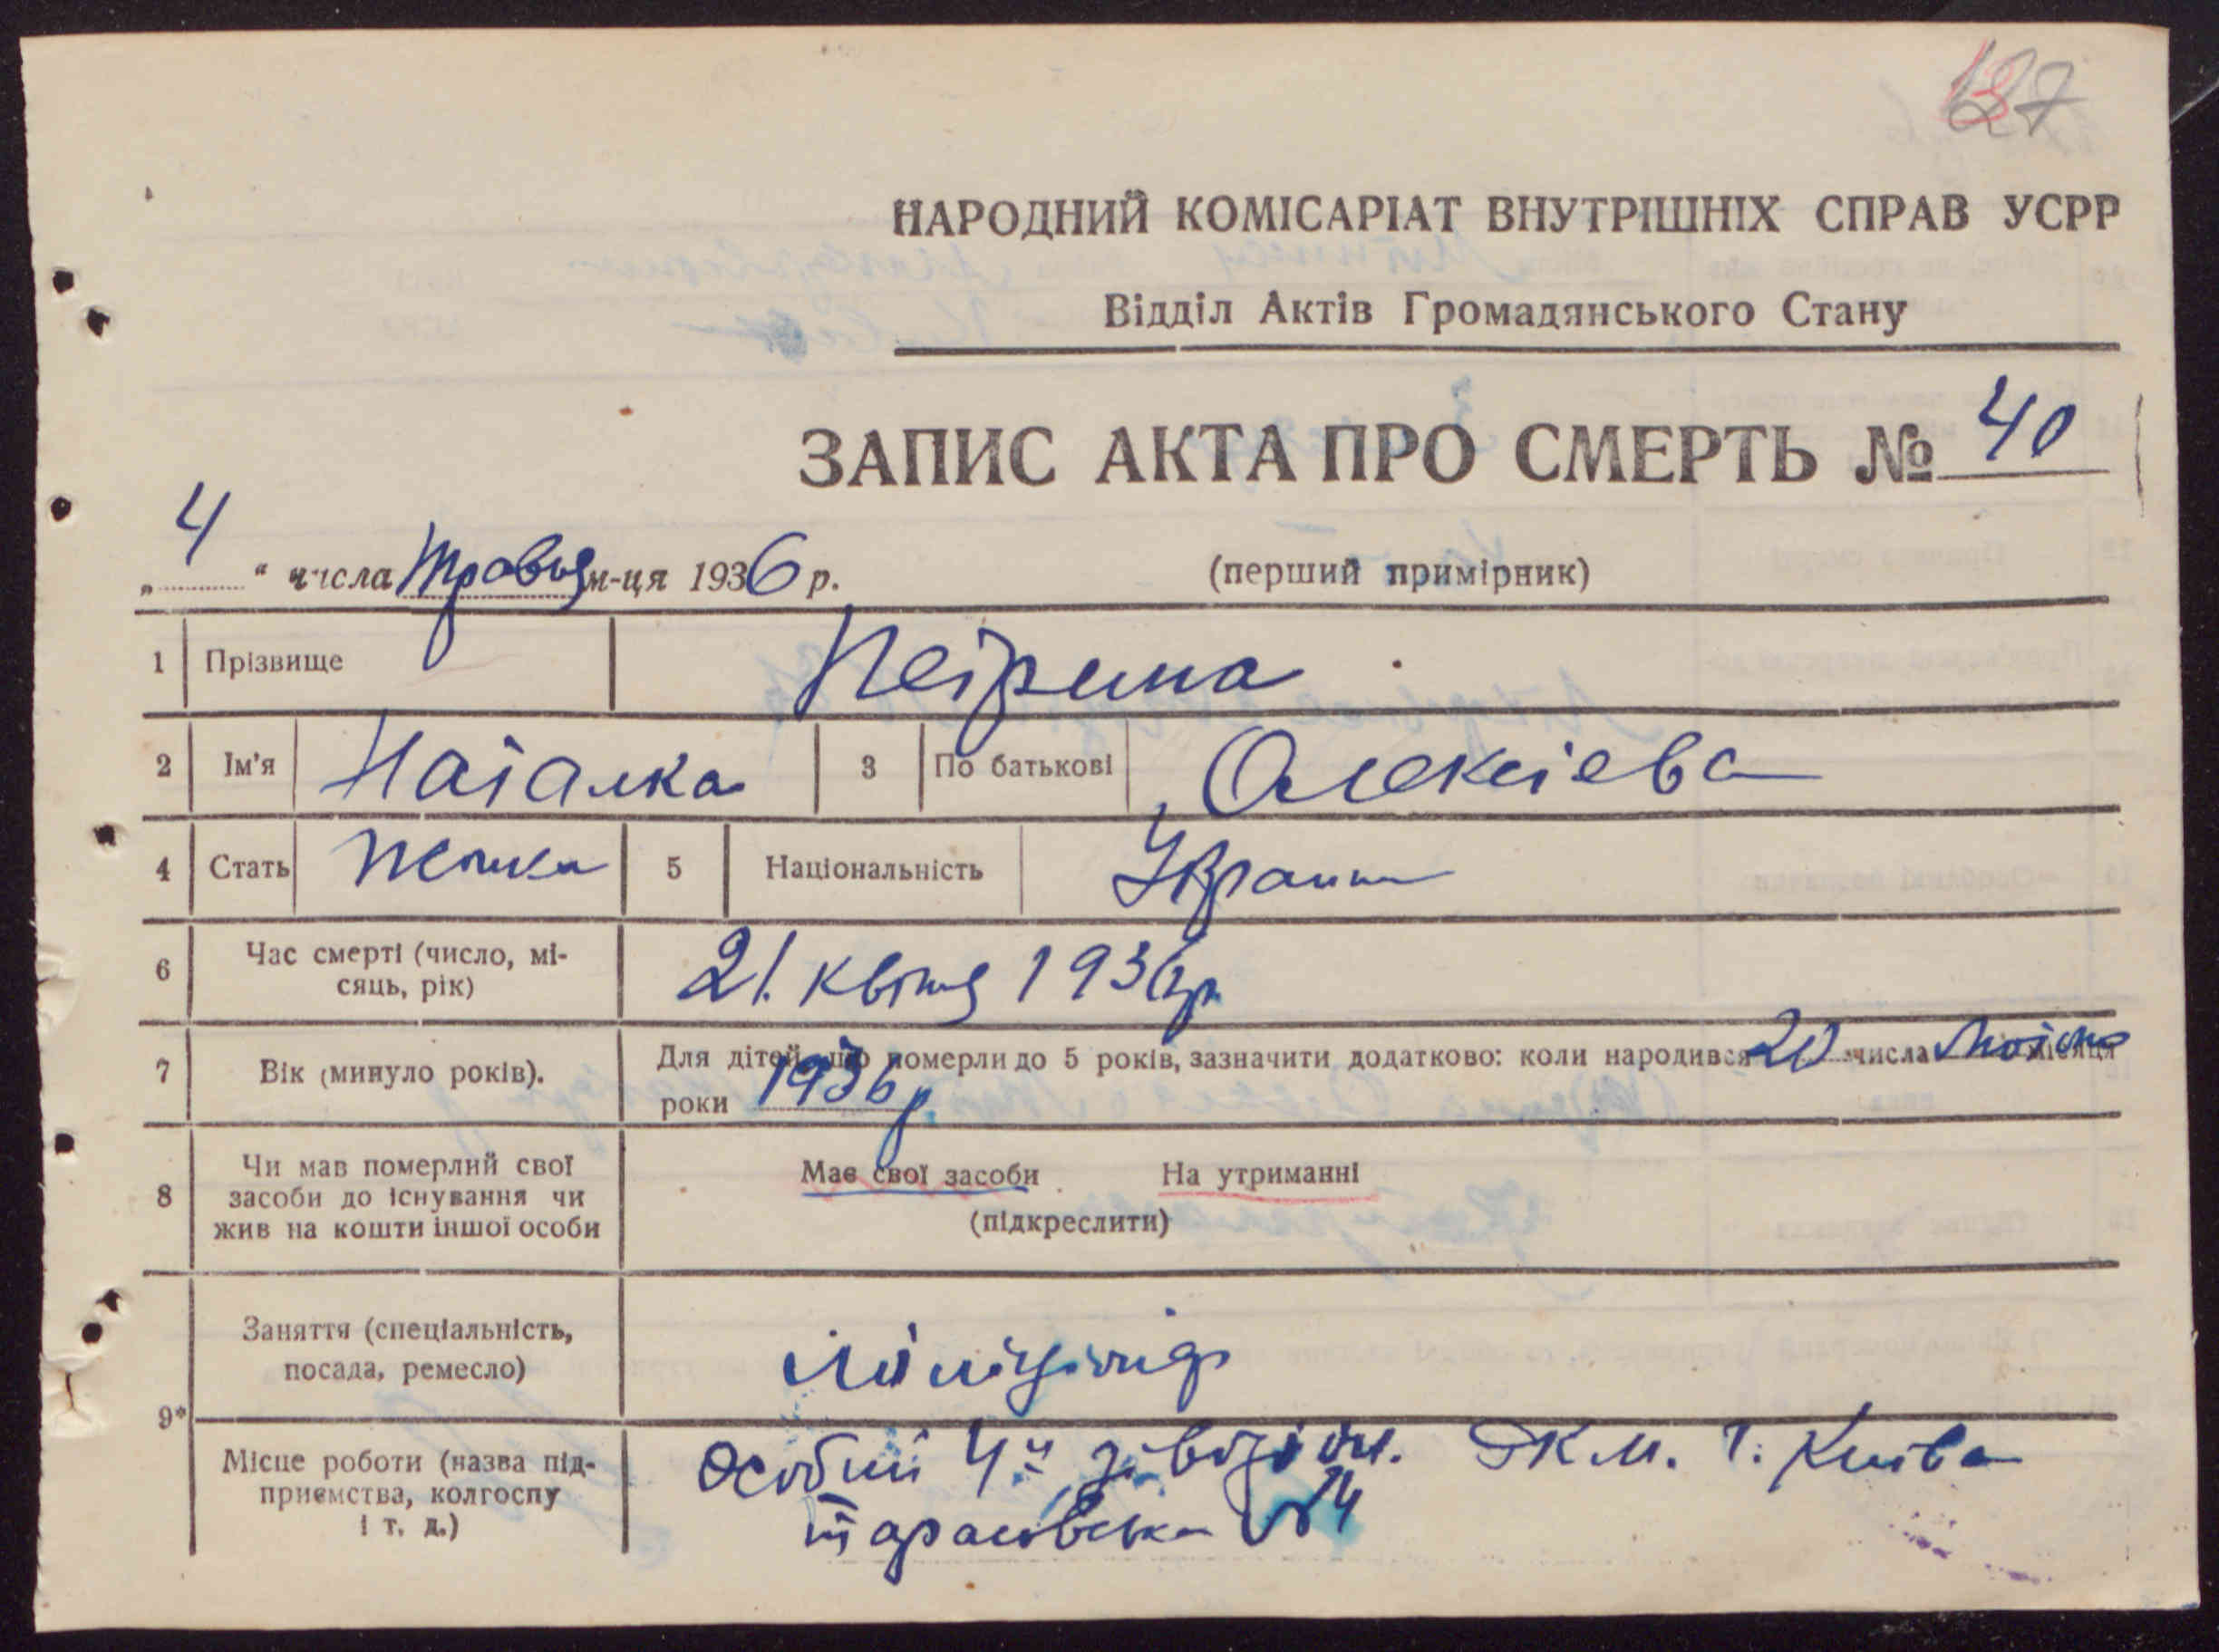 127
НАРОДНИЙ КОМІСАРІАТ ВНУТРІШНІХ СПРАВ УСРР
Відділ Актів Громадянського Стану
ЗАПИС АКТА ПРО СМЕРТЬ № 40
„ 4 “ числа Травня м-ця 1936 р.
(перший примірник)
1 Прізвище Петрина
2 Ім'я Наталка 3 По батькові Олексіева
4 Стать Жінка 5 Національність Україн
6 Час смерті (число, мі-
сяць, рік) 21 квітня 1936 р.
7 Вік (минуло років). Для дітей, що померли до 5 років, зазначити додатково: коли народився 20 числа Лютого місяця
роки 1936 р.
8 Чи мав померлий свої
засоби до існування чи
жив на кошти іншої особи
Має свої засоби На утриманні
(підкреслити)
9*
Заняття (спеціальність,
посада, ремесло) Міліціонер
Місце роботи (назва під-
приємства, колгоспу
і т. д.)
Особий 4й дівізіон. РКМ. г. Київа
Тарасівська №4